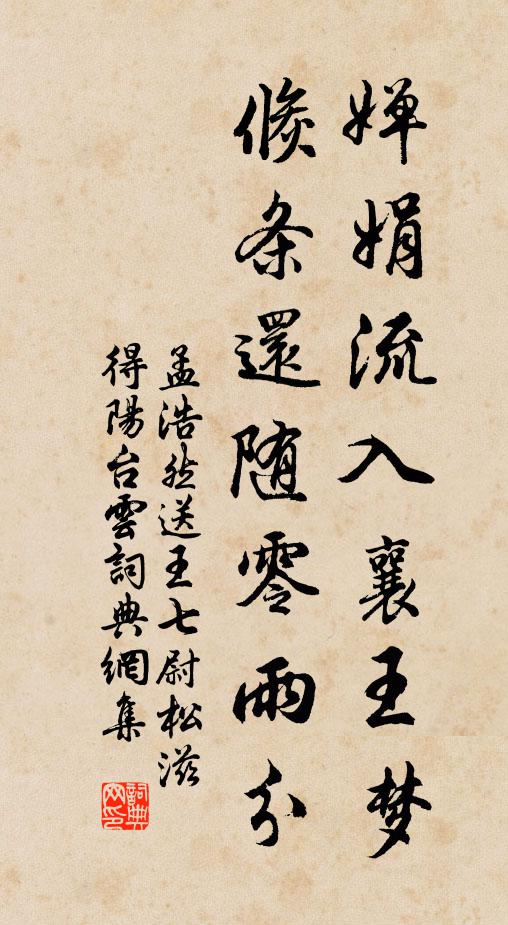 婵娟流入襄王梦
倏条還随零雨分
孟浩然送王七尉松滋
得陽台雲詞典網集
詞典网印